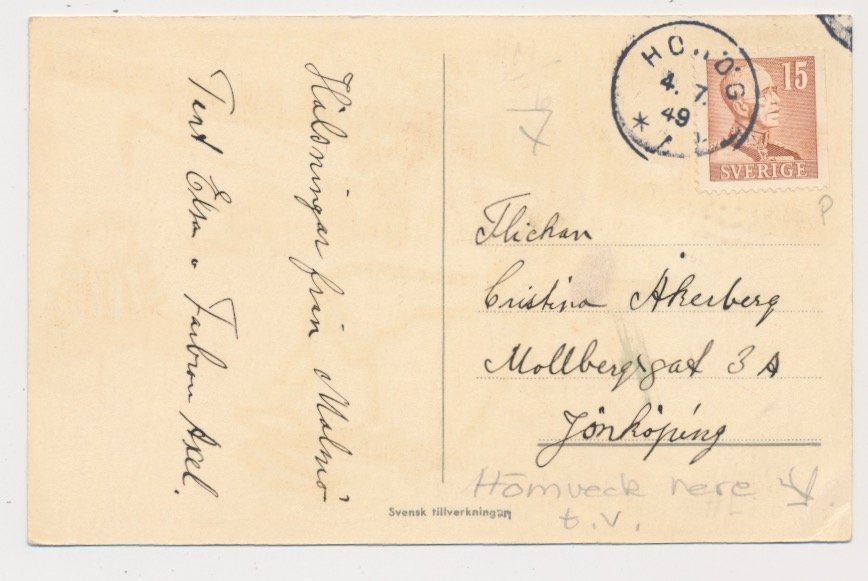 Hälsningar från Malmö
Tant Elsa o Farbror Axel.
4. 7.
49
15
SVERIGE
P
Flickan
Cristina Åkerberg
Mollbergsgat 3 A
Jönköping
Hörnveck nere
t.v.
Svensk tillverkning